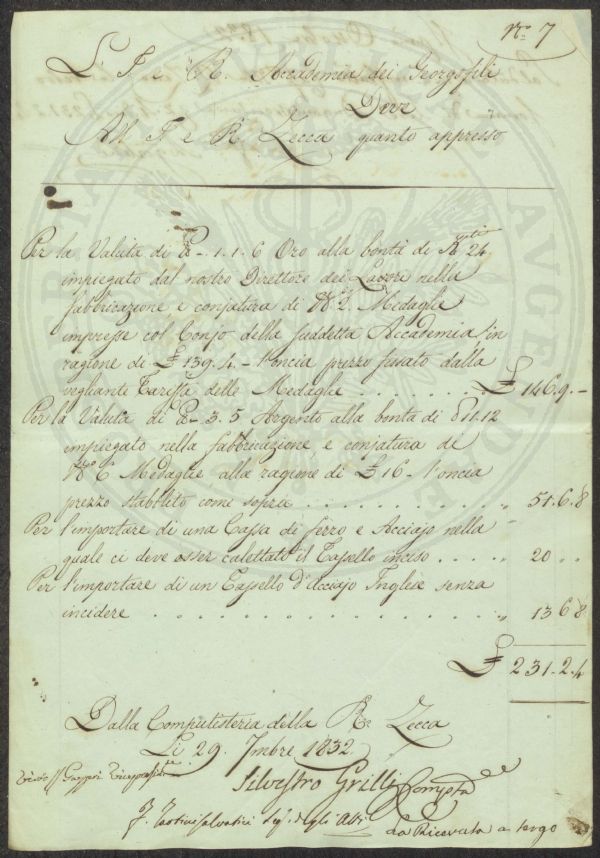 N.º 7
L' I. e R. Accademia dei Georgofili
Deve
All' I. e R. Zecca quanto appresso
Per la Valuta di 1.1.6 Oro alla bontà di K.ti 24
impiegato dal nostro Direttore dei Lavori nella
fabbricazione e conjatura di N.º 2. Medaglie
impresse col Conjo della suddetta Accademia in
ragione di £ 139.4 - l'oncia prezzo fissato dalla
vegliante Tariffa delle Medaglie . . . . . . . £ 146.9.-
Per la Valuta di 3.5 Argento alla bontà di 11.12
impiegato nella fabbricazione e conjatura di
N.º 6 Medaglie alla ragione di £ 16 - l'oncia
prezzo stabilito come sopra . . . . . . . . . . „ 51.6.8
Per l'importare di una Cassa di ferro e Acciajo nella
quale ci deve esser calettato il Tassello inciso . . . . „ 20 . .
Per l'importare di un Tassello d'Acciajo Inglese senza
incidere . . . . . . . . . . . . . . . „ 13 6 8
£ 231.2.4
Dalla Computisteria della R. Zecca
Li 29. 7mbre 1832
Visto Gasperi
Silvestro Grilli Compta
F. Tartini Salvatici Seg. degli Atti
La Ricevuta a tergo